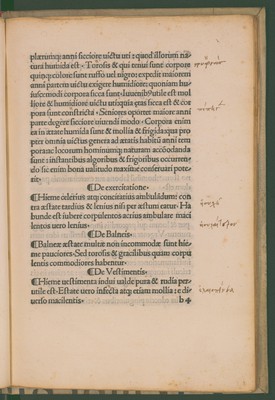 plærumq; anni sicciore uictu uti : quod illorum na
tura humida est · Torosis & qui tenui sunt corpore
quiq; colore sunt ruffo uel nigro: expedit maiorem
anni partem uictu exigere humidiore: quoniam hu
iuscemodi corpora sicca sunt · Iuuenib⁹ utile est mol
liore & humidiore uictu uti: quia ætas sicca est & cor
pora sunt constricta · Seniores oportet maiore anni
parte degere sicciore uiuendi modo · Corpora enim
ea in ætate humida sunt & mollia & frigida: qua pro
pter omnia uictus genera ad ætatis habitū anni tem
pora nec locorum hominumq; naturam accōmodanda
sunt : instantibus algoribus & frigoribus occurren
do sic enim bona ualitudo maxime conseruari pote
rit ·
❡De exercitatione ·
❡Hieme celerius atq; concitatius ambulādum: con
tra æstate tardius & lenius nisi per æstum eatur · Ha
bunde est iubere corpulentos acrius ambulare maci
lentos uero lenius ·
❡De Balneis ·
❡Balneæ æstate multæ non incommodæ sunt hie=
me pauciores · Sed torosis & gracilibus quam corpu
lentis commodiores habentur ·
❡De Vestimentis ·
❡Hieme uestimenta indui ualde pura & rudia per=
utile est · Estate uero infecta atq; etiam mollia : e di=
uerso macilentis ·
b 4